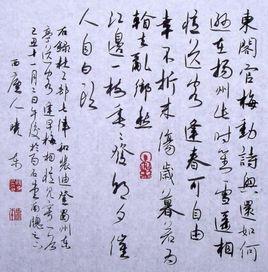 東閣官梅動詩興還如何
遜在揚州此時對雪遙相
憶送客逢春可自由
幸不折來傷歲暮若為
看去亂鄉愁
江邊一枝垂垂發朝夕催
人自白頭
右錄杜工部七律和裴迪登蜀州東
亭送客逢早梅相憶見寄一首
己丑十一月三日午後於石堂南窗之下
西廬人曉東